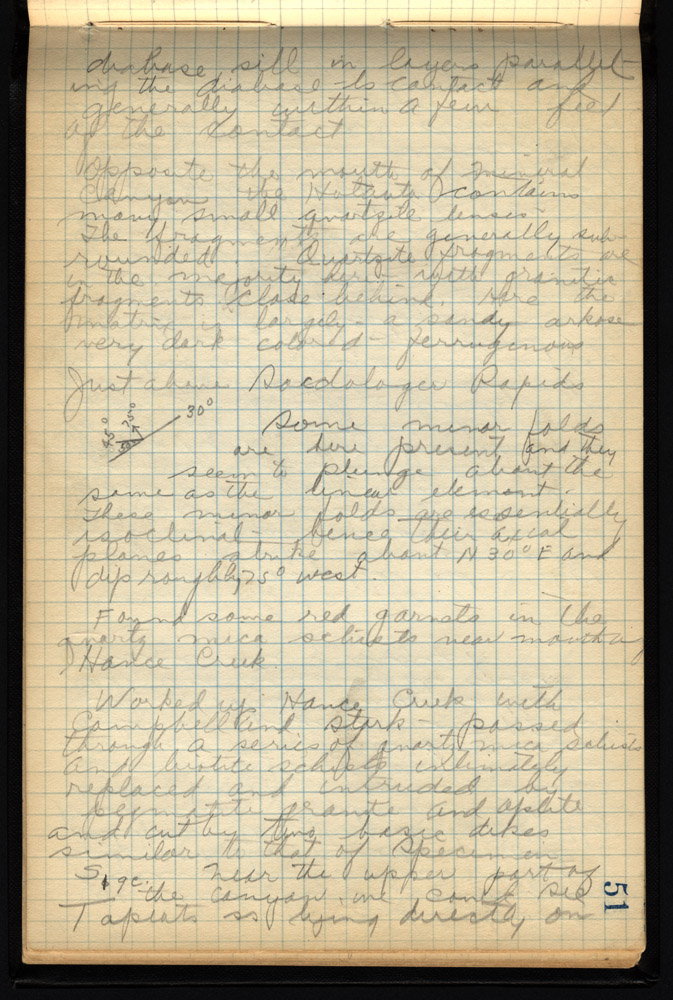 diabase sill in layers parallel-
ing the diabase-ls contact and
generally within a few feet
of the contact
Opposite the mouth of Mineral
Canyon the Hotauta contains
many small quartzite lenses.
The fragments are generally sub-
rounded. Quartzite fragments are
in the majority here with granitic
fragments close behind. Here the
matrix is largely a sandy arkose
very dark colored - ferruginous
Just above Socdologer Rapids
45° 75° 30°
Some minor folds
are here present and they
seem to plunge about the
same as the linear element.
These minor folds are essentially
isoclinal - hence their axial
planes strike about N 30° E and
dip roughly 75° west.
Found some red garnets in the
quartz mica schists near mouth of
Hance Creek.
Worked up Hance Creek with
Campbell and Stark - passed
through a series of quartz mica schists
and biotite schists intimately
replaced and intruded by
pegmatite granite and aplite
and cut by two basic dikes
similar to that of specimen
S19c. Near the upper part of
the canyon we could see
Tapeats ss lying directly on
51